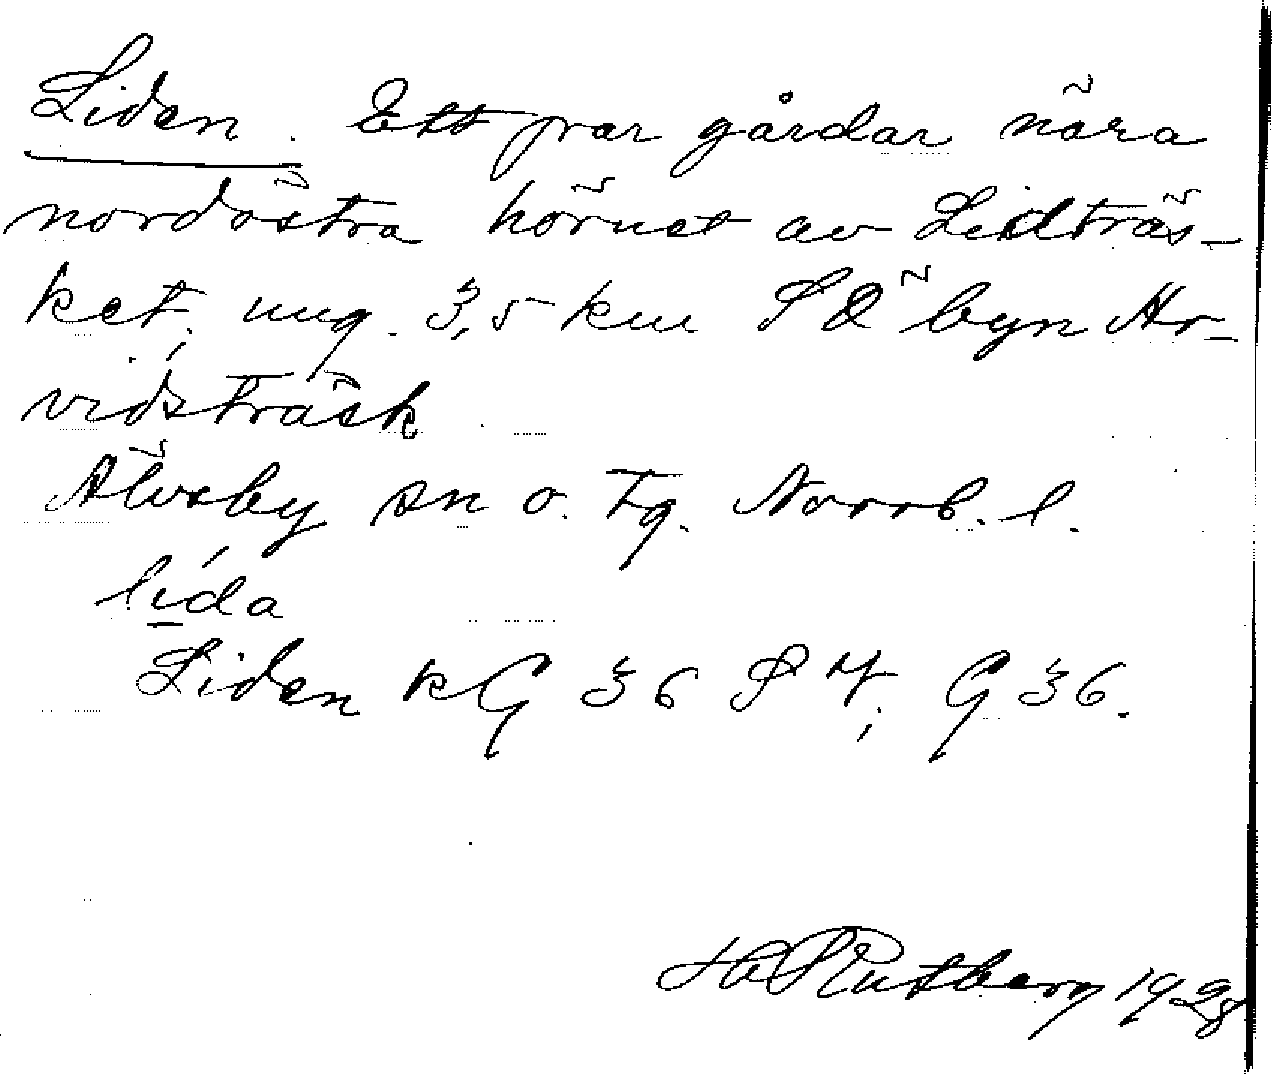 Liden. Ett par gårdar nära
nordöstra hörnet av Lidträs-
ket, ung. 3,5 km SÖ byn Ar-
vidsträsk
Älvsby sn o. tg. Norrb. l.
lída
Liden kG 36 S 7; G 36.
Rutberg 1928